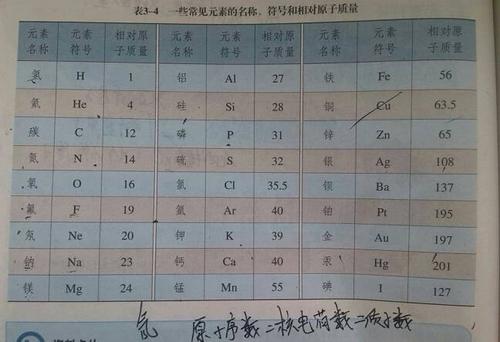 表3-4 一些常见元素的名称、符号和相对原子质量
元素 元素 相对原 元素 元素 相对原 元素 元素 相对原
名称 符号 子质量 名称 符号 子质量 名称 符号 子质量
氢 H 1 铝 Al 27 铁 Fe 56
氦 He 4 硅 Si 28 铜 Cu 63.5
碳 C 12 磷 P 31 锌 Zn 65
氮 N 14 硫 S 32 银 Ag 108
氧 O 16 氯 Cl 35.5 钡 Ba 137
氟 F 19 氩 Ar 40 铂 Pt 195
氖 Ne 20 钾 K 39 金 Au 197
钠 Na 23 钙 Ca 40 汞 Hg 201
镁 Mg 24 锰 Mn 55 碘 I 127
原子序数=核电荷数=质子数